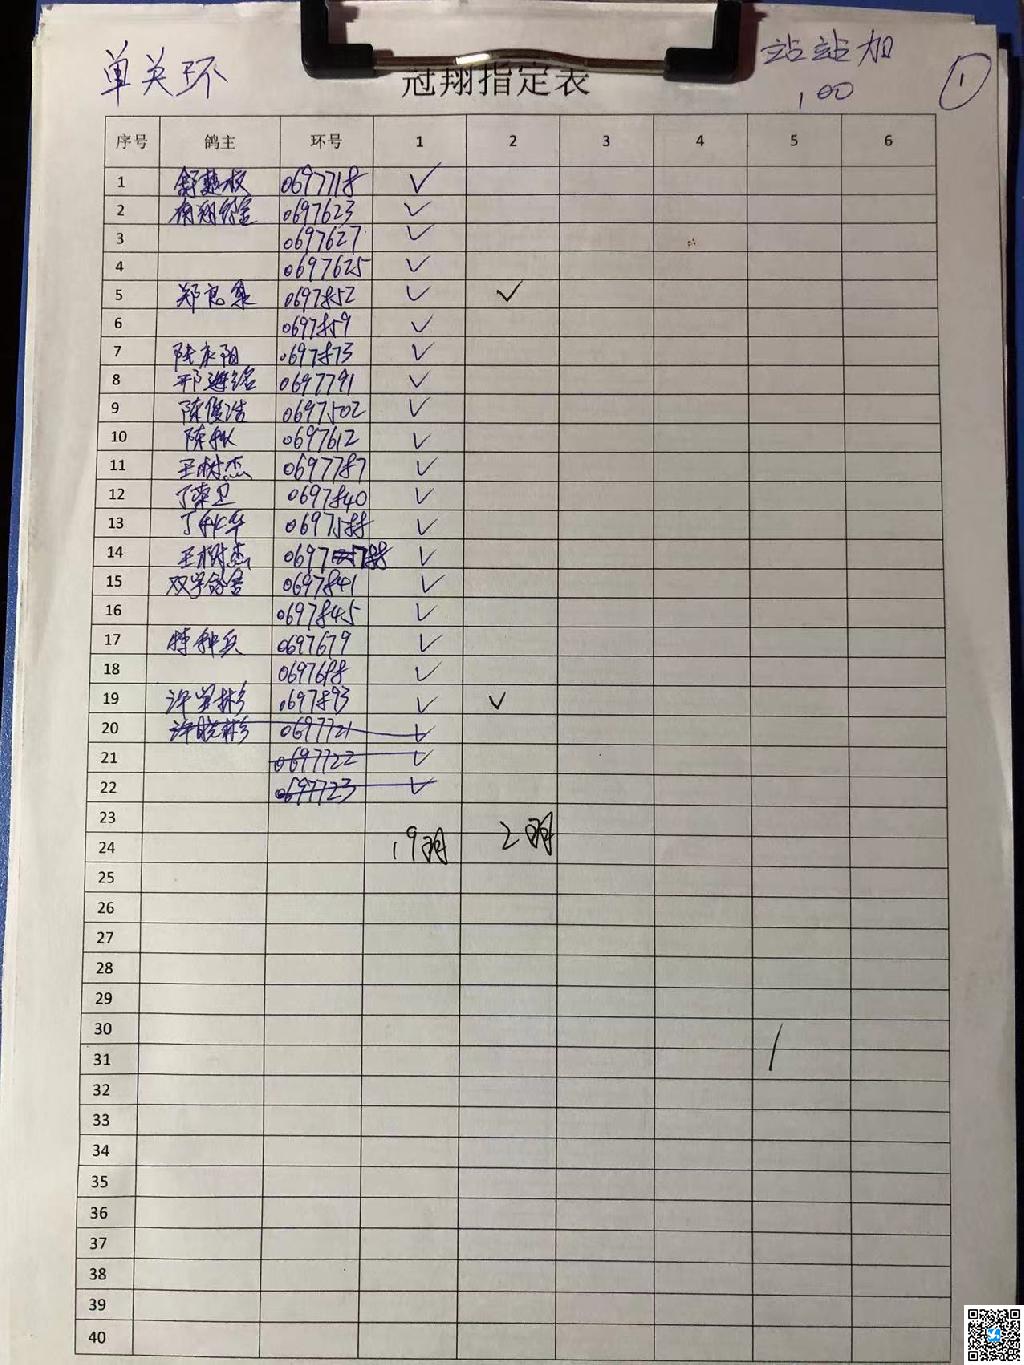 单关环
站站加
100
①
冠翔指定表
序号 鸽主 环号 1 2 3 4 5 6
1 0697718 ✓
2 0697623 ✓
3 0697627 ✓
4 0697625 ✓
5 0697852 ✓ ✓
6 0697859 ✓
7 陆永阳 0697873 ✓
8 0697791 ✓
9 陈俊浩 0697502 ✓
10 0697612 ✓
11 王树杰 0697787 ✓
12 丁荣卫 0697840 ✓
13 0697588 ✓
14 王树杰 0697788 ✓
15 双学鸽舍 0697841 ✓
16 0697845 ✓
17 特种兵 0697679 ✓
18 0697688 ✓
19 0697893 ✓ ✓
20 许晓彬 0697721 ✓
21 0697722 ✓
22 0697723 ✓
23
24 19羽 2羽
25
26
27
28
29
30
31
32
33
34
35
36
37
38
39
40